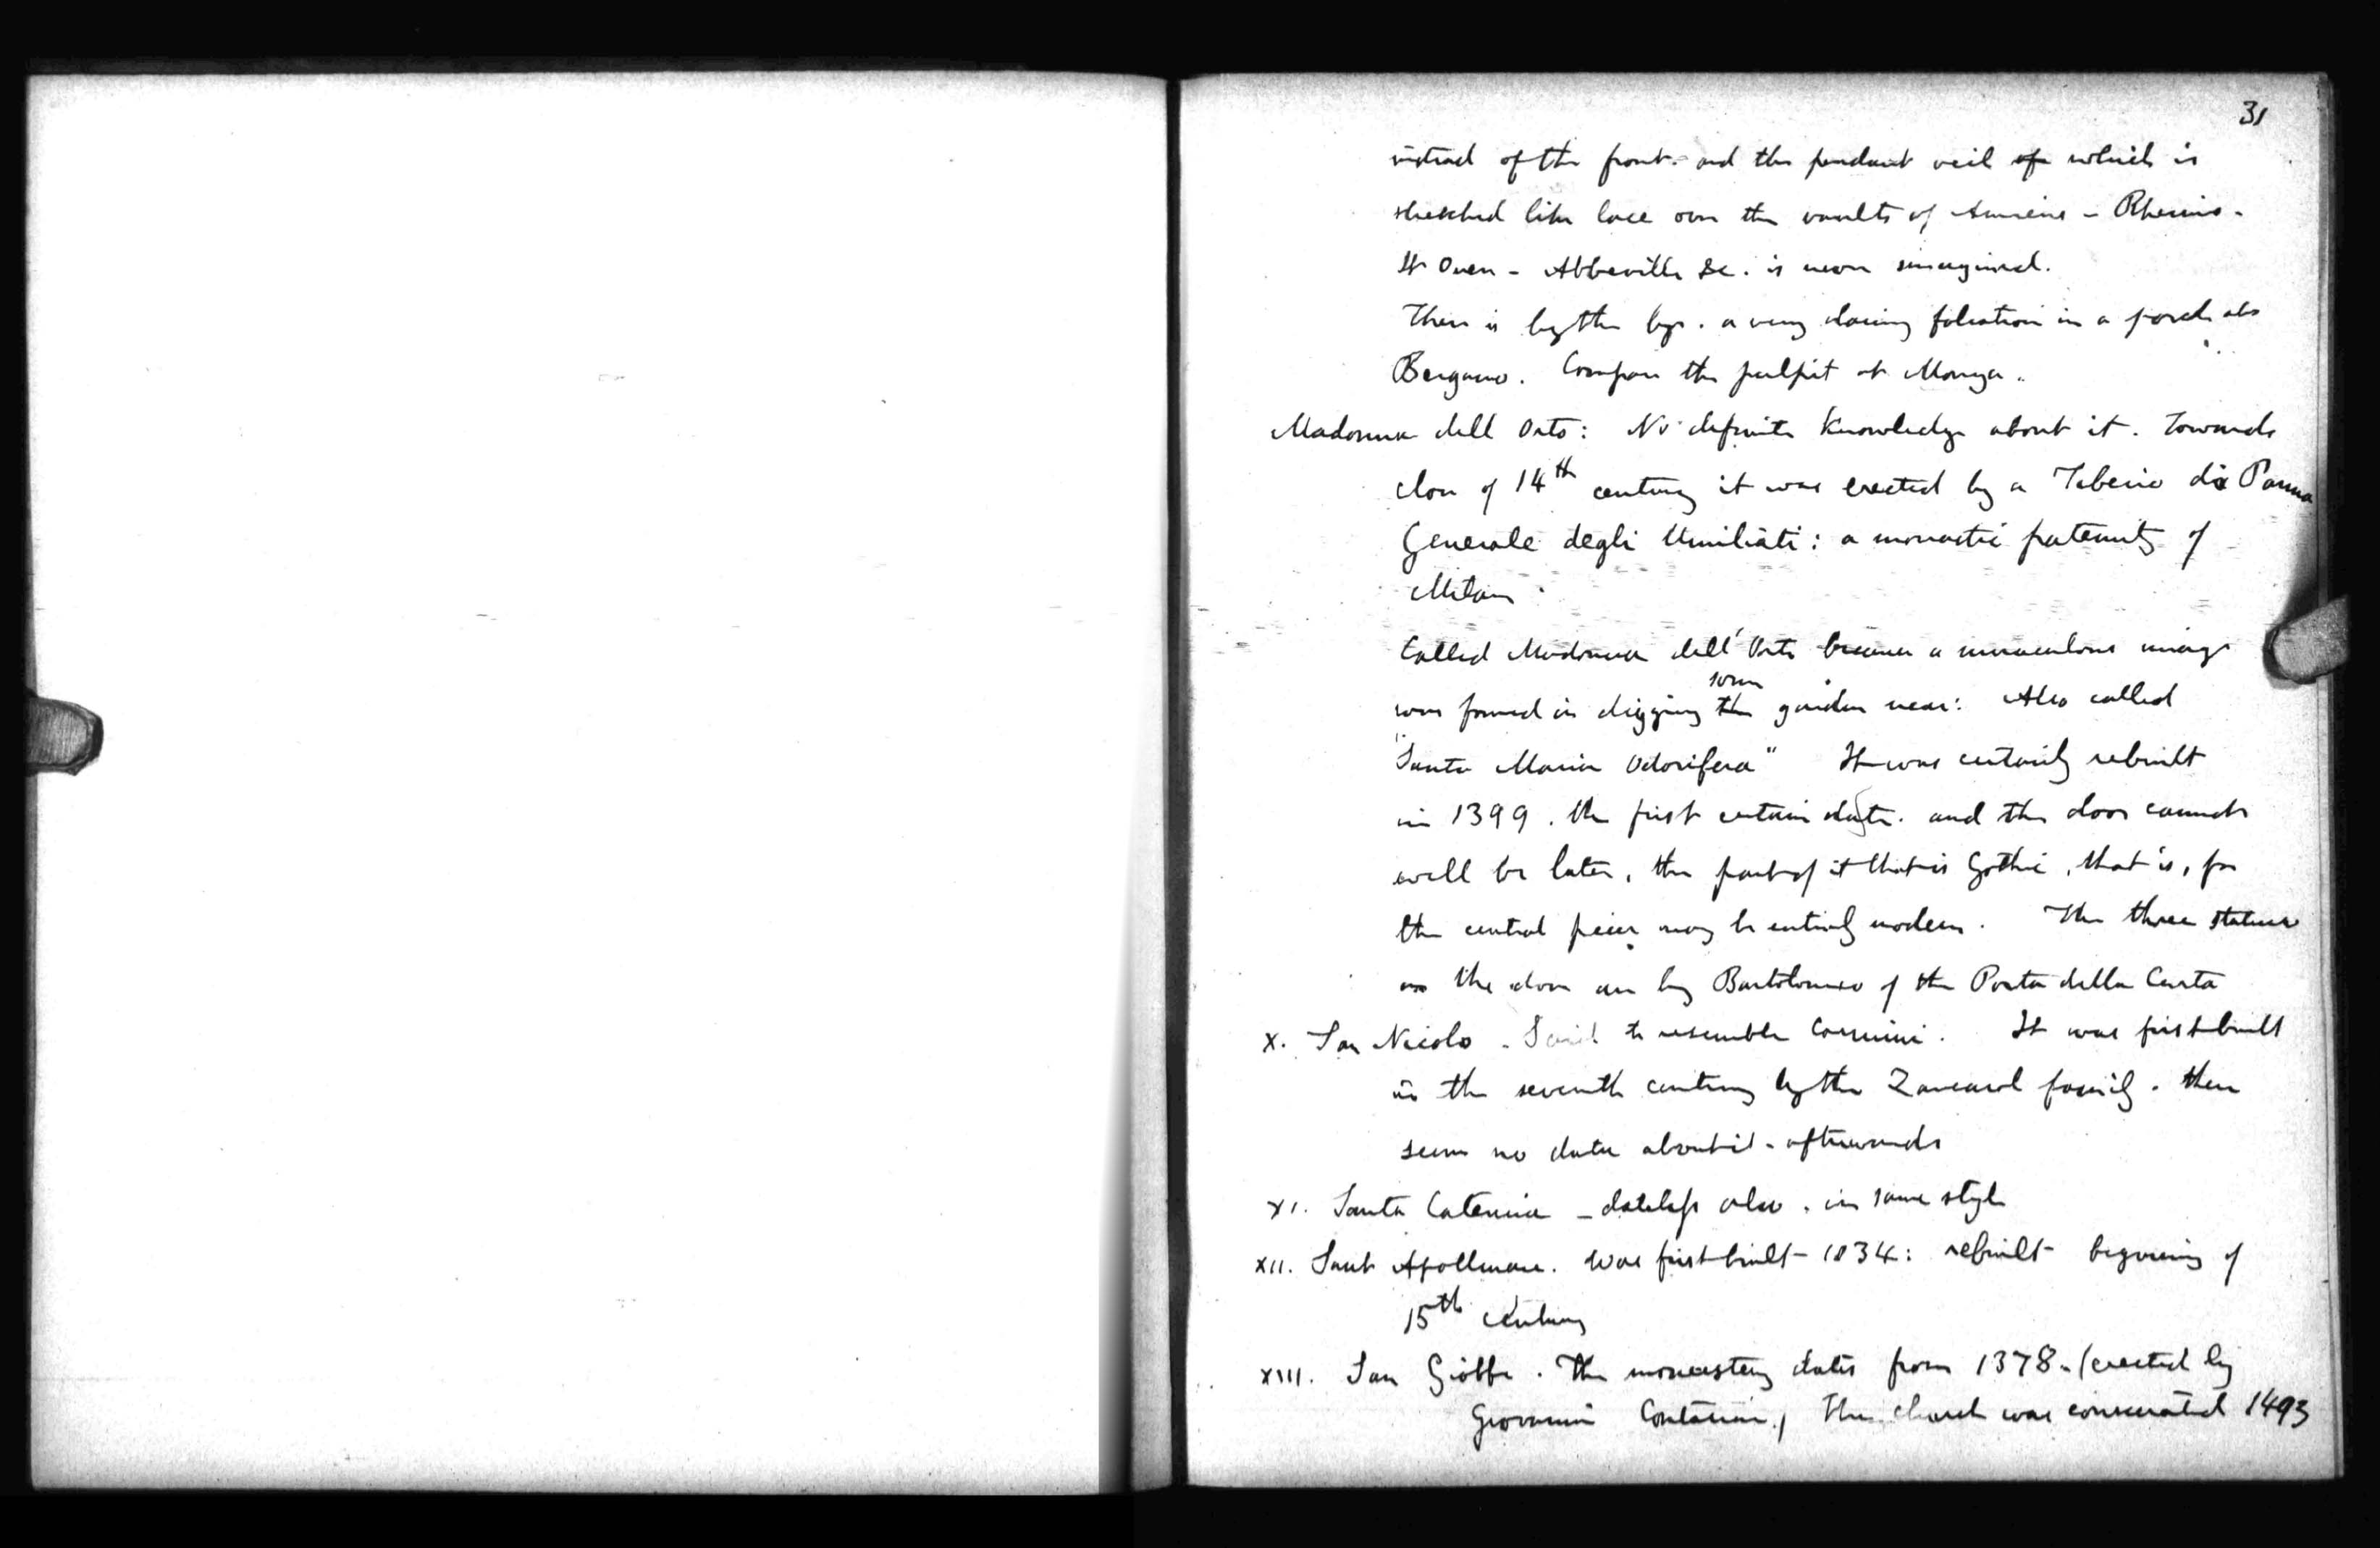 31
instead of the front. and the pendant veil of which is
stretched like lace over the vaults of Amiens - Rheims -
St Ouen - Abbeville &c. is never imagined.
There is by the bye. a very daring foliation in a porch at
Bergamo. Compare the pulpit at Monza.
Madonna dell Orto: No definite knowledge about it. Towards
close of 14th century it was erected by a Tiberio di Parma
Generale degli Umiliati: a monastic fraternity of
Milan.
Called Madonna dell' Orto because a miraculous image
some
was found in digging the garden near: Also called
"Santa Maria Odorifera" It was certainly rebuilt
in 1399. the first certain date. and the door cannot
well be later, the part of it that is Gothic, that is, for
the central piece may be entirely modern. The three statues
on the door are by Bartolomeo of the Porta della Carta
X. San Nicolo. Said to resemble Carmini. It was first built
in the seventh century by the Zancarol family. there
seem no data about it - afterwards
XI. Santa Caterina - dateless also. in same style
XII. Sant Apollinare. Was first built 1034: rebuilt beginning of
15th century
XIII. San Giobbe. The monastery dates from 1378 - (erected by
Giovanni Contarini,) The church was consecrated 1493